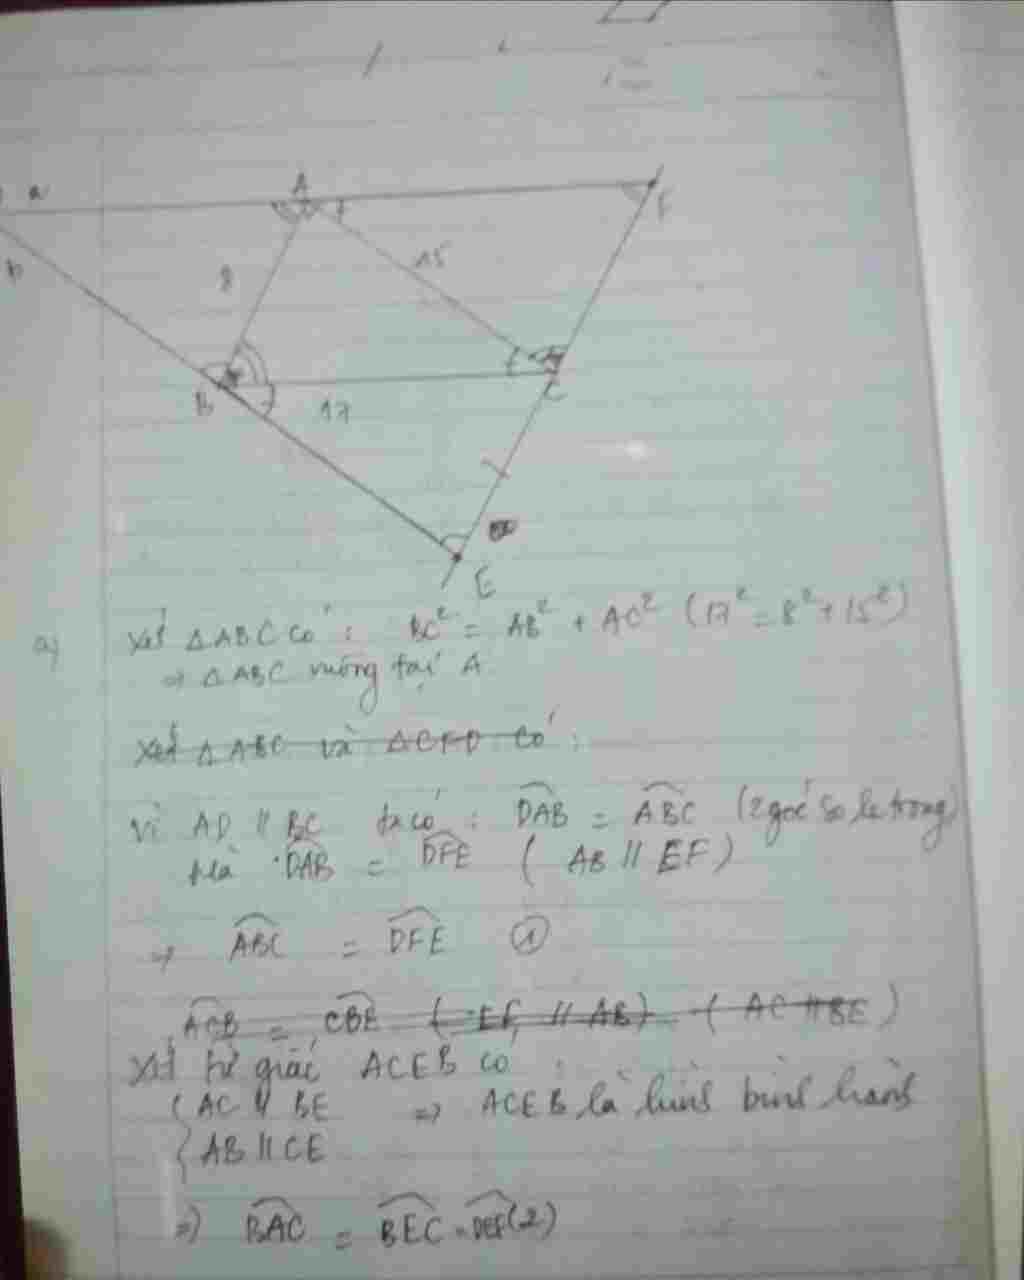 a
A
F
D
8
15
B
17
C
E
a) Xét △ABC có : BC² = AB² + AC² (17² = 8² + 15²)
⇒ △ABC vuông tại A
Xét △ABC và △CFD có :
Vì AD // BC ta có : DAB = ABC (2 góc so le trong)
Mà DAB = DFE ( AB // EF )
⇒ ABC = DFE ①
ACB = CBE ( EF // AB) ( AC // BE )
Xét tứ giác ACEB có :
{ AC // BE ⇒ ACEB là hình bình hành
AB // CE
⇒ BAC = BEC = DEF (2)